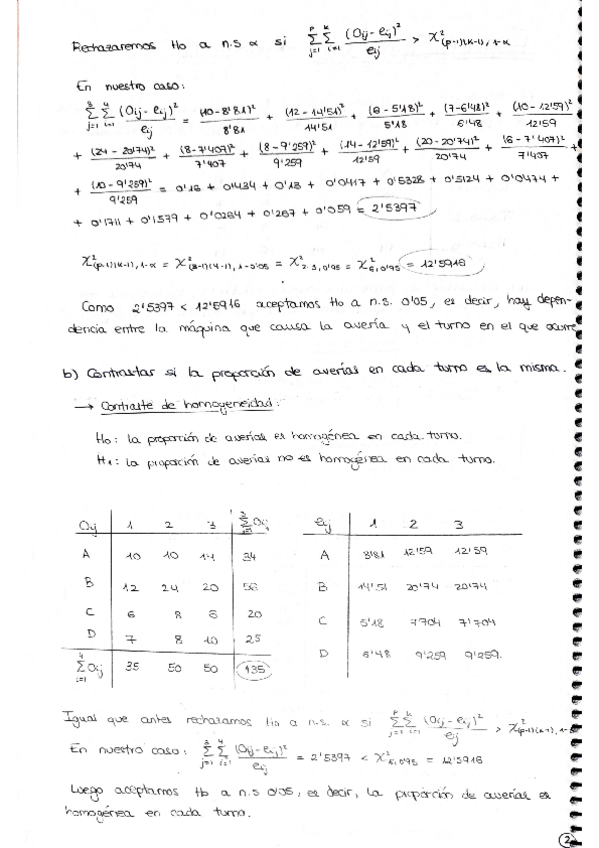 Rechazaremos Ho a n.s α si Σ_{j=1}^{p} Σ_{i=1}^{k} (Oij - eij)² / eij > χ²(p-1)(k-1), 1-α
En nuestro caso:
Σ_{j=1}^{3} Σ_{i=1}^{4} (Oij - eij)² / eij = (10-8'81)²/8'81 + (12-14'51)²/14'51 + (6-5'18)²/5'18 + (7-6'48)²/6'48 + (10-12'59)²/12'59
+ (24-20'74)²/20'74 + (8-7'407)²/7'407 + (8-9'259)²/9'259 + (14-12'59)²/12'59 + (20-20'74)²/20'74 + (6-7'407)²/7'407 +
+ (10-9'259)²/9'259 = 0'16 + 0'434 + 0'13 + 0'0417 + 0'5328 + 0'5124 + 0'0474 +
+ 0'1711 + 0'1579 + 0'0264 + 0'267 + 0'059 = 2'5397
χ²(p-1)(k-1), 1-α = χ²(3-1)(4-1), 1-0'05 = χ²2·3, 0'95 = χ²6, 0'95 = 12'5916
Como 2'5397 < 12'5916 aceptamos Ho a n.s. 0'05, es decir, hay depen-
dencia entre la máquina que causa la avería y el turno en el que ocurre
b) Contrastar si la proporción de averías en cada turno es la misma.
→ Contraste de homogeneidad:
Ho: la proporción de averías es homogénea en cada turno.
H1: la proporción de averías no es homogénea en cada turno.
Oij 1 2 3 Σ Oij eij 1 2 3
A 10 10 14 34 A 8'81 12'59 12'59
B 12 24 20 56 B 14'51 20'74 20'74
C 6 8 6 20 C 5'18 7'704 7'704
D 7 8 10 25 D 6'48 9'259 9'259.
Σ_{i=1}^{4} Oij 35 50 50 135
Igual que antes rechazamos Ho a n.s. α si Σ_{j=1}^{p} Σ_{i=1}^{k} (Oij - eij)² / eij > χ²(p-1)(k-1), 1-α
En nuestro caso: Σ_{j=1}^{3} Σ_{i=1}^{4} (Oij - eij)² / eij = 2'5397 < χ²6, 0'95 = 12'5916
Luego aceptamos Ho a n.s 0'05, es decir, la proporción de averías es
homogénea en cada turno.
2